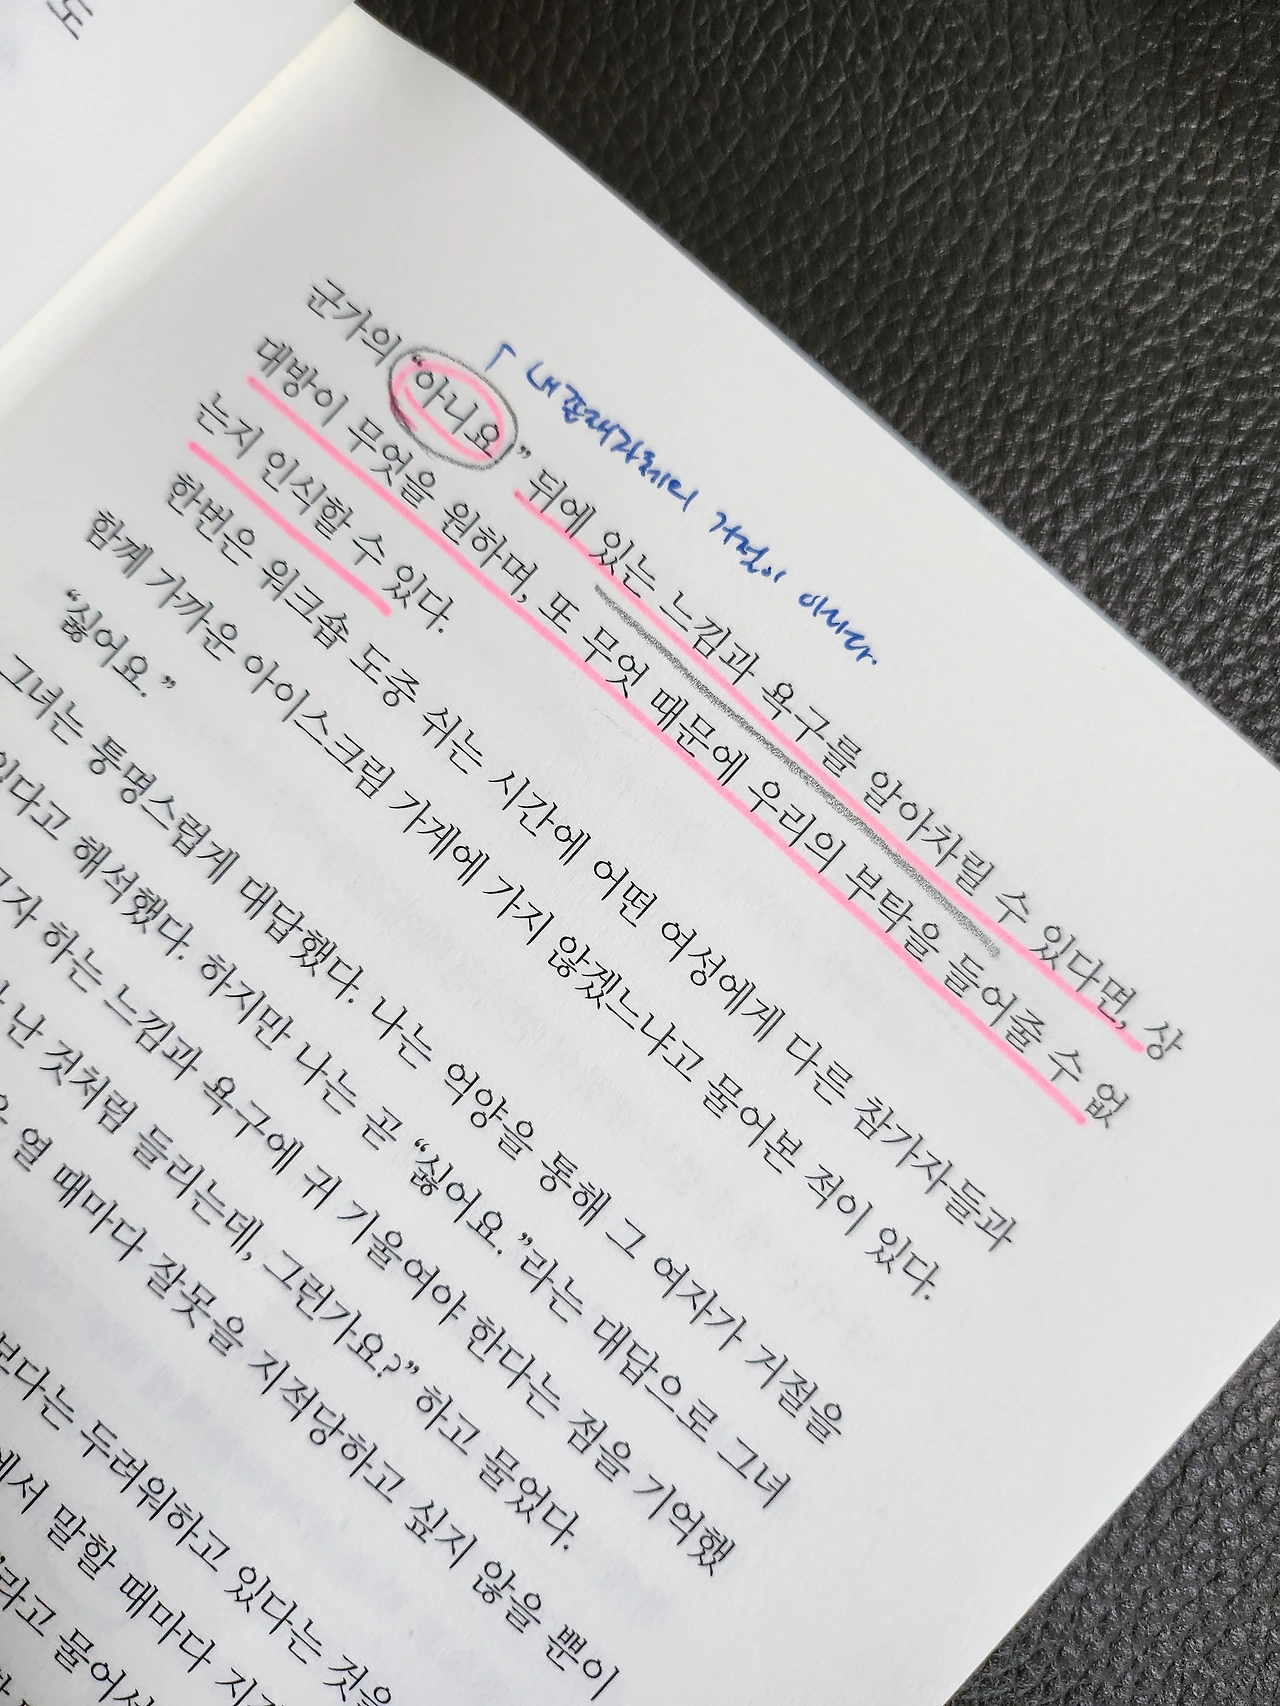 도
「 내 존재자체의 거절이 아니다.
군가의 “아니요” 뒤에 있는 느낌과 욕구를 알아차릴 수 있다면, 상
대방이 무엇을 원하며, 또 무엇 때문에 우리의 부탁을 들어줄 수 없
는지 인식할 수 있다.
한번은 워크숍 도중 쉬는 시간에 어떤 여성에게 다른 참가자들과
함께 가까운 아이스크림 가게에 가지 않겠느냐고 물어본 적이 있다.
“싫어요.”
그녀는 퉁명스럽게 대답했다. 나는 억양을 통해 그 여자가 거절을
있다고 해석했다. 하지만 나는 곧 “싫어요.”라는 대답으로 그녀
고자 하는 느낌과 욕구에 귀 기울여야 한다는 점을 기억했
난 것처럼 들리는데, 그런가요?” 하고 물었다.
열 때마다 잘못을 지적당하고 싶지 않을 뿐이
보다는 두려워하고 있다는 것을
에서 말할 때마다
라고